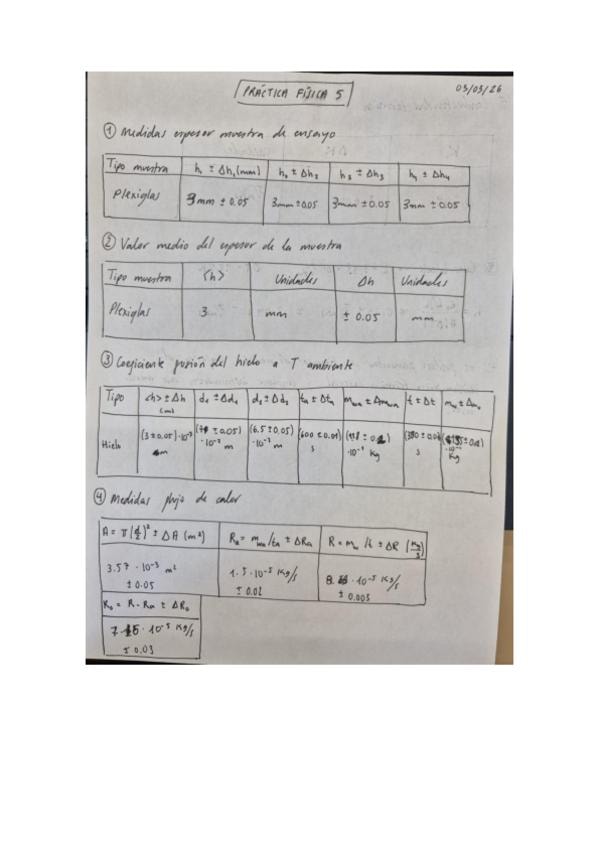 PRÁCTICA FÍSICA 5
03/03/26
① Medidas espesor muestra de ensayo
Tipo muestra h₁ ± Δh₁(mm) h₂ ± Δh₂ h₃ ± Δh₃ h₄ ± Δh₄
Plexiglas 3mm ± 0.05 3mm ± 0.05 3mm ± 0.05 3mm ± 0.05
② Valor medio del espesor de la muestra
Tipo muestra <h> Unidades Δh Unidades
Plexiglas 3 mm ± 0.05 mm
③ Coeficiente fusión del hielo a T ambiente
Tipo <h> ± Δh (m) d₁ ± Δd₁ d₂ ± Δd₂ ta ± Δta mwa ± Δmwa t ± Δt mw ± Δmw
Hielo (3 ± 0.05)·10⁻³ m ± 0.05) ·10⁻² m (6.5 ± 0.05) ·10⁻² m (600 ± 0.01) s ·10⁻³ Kg s Kg
④ Medidas flujo de calor
A = π(d/2)² ± ΔA (m²) Ra = mwa/ta ± ΔRa R = mw/t ± ΔR (Kg/s)
3.57 · 10⁻³ m² 1.5·10⁻⁵ Kg/s · 10⁻⁵ Kg/s
± 0.05 ± 0.02 ± 0.003
R₀ = R - Ra ± ΔR₀
· 10⁻⁵ Kg/s
± 0.03